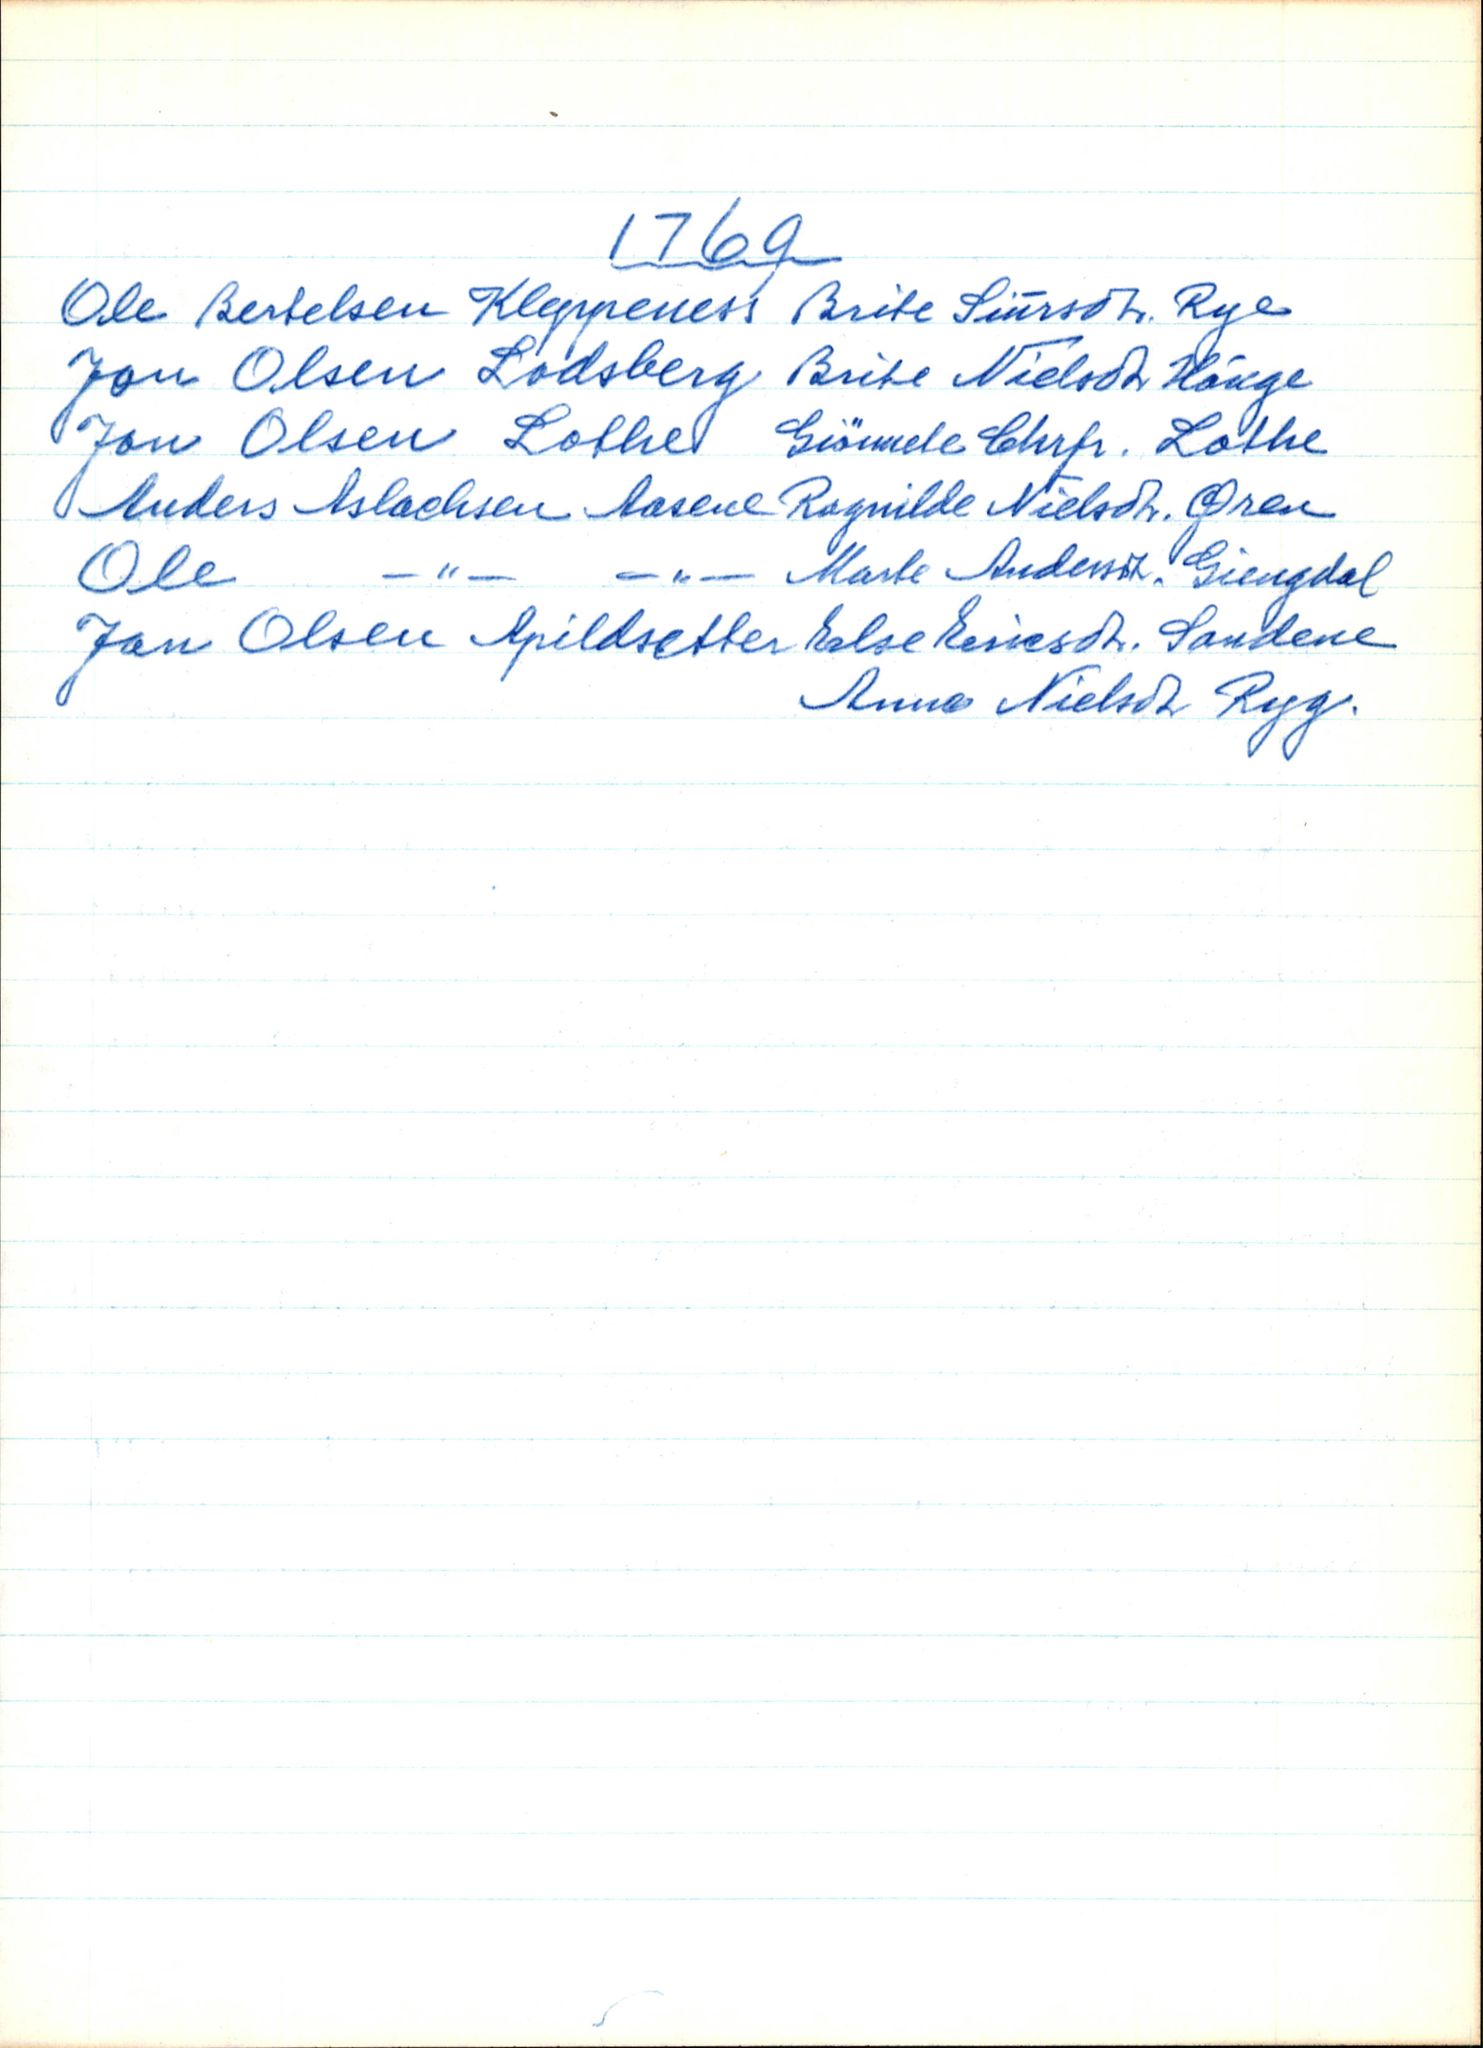 1769
Ole Bertelsen Kleppeness Brite Siürsdtr. Rye
Jon Olsen Lodsberg Brite Nielsdtr Höuge
Jon Olsen Lothe Giönnete Chrfr. Lothe
Anders Aslachsen Aasene Ragnilde Nielsdtr. Øren
Ole —"— —"— Marte Andersdtr. Giengdal
Jan Olsen Apildsetter Else Ericsdtr. Sandene
Anna Nielsdtr Ryg.